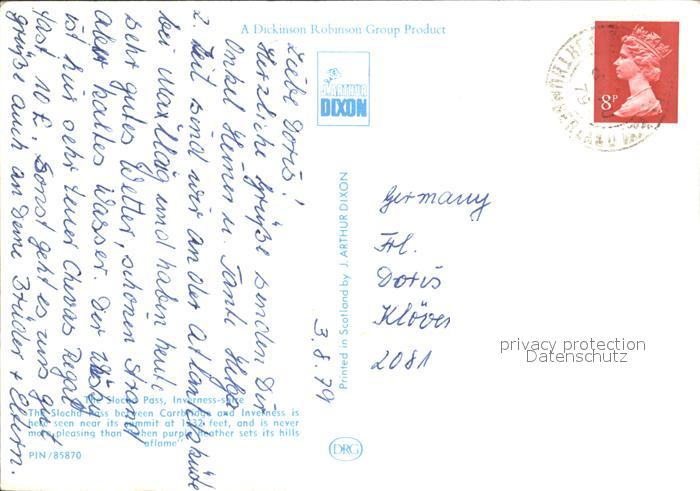 A Dickinson Robinson Group Product
J. ARTHUR
DIXON
8P
79
Liebe Doris!
Herzliche Grüße senden Dir
Onkel Heiner u. Tante Helga
z. Zeit sind wir an der Atlantikküste
bei und haben heute
sehr gutes Wetter, schönen Strand
aber kaltes Wasser. Der Whisky
ist hier sehr teuer Chevas Regal
fast 10 £. Sonst geht es uns gut
grüße auch an Deine Brüder + Eltern.
3.8.79
Printed in Scotland by J. ARTHUR DIXON
Germany
Frl.
Doris
Klöver
2081
privacy protection
Datenschutz
The Slochd Pass, Inverness-shire
The Slochd Pass between Carrbridge and Inverness is
here seen near its summit at 1332 feet, and is never
more pleasing than when purple heather sets its hills
"aflame"
PIN/85870
DRG